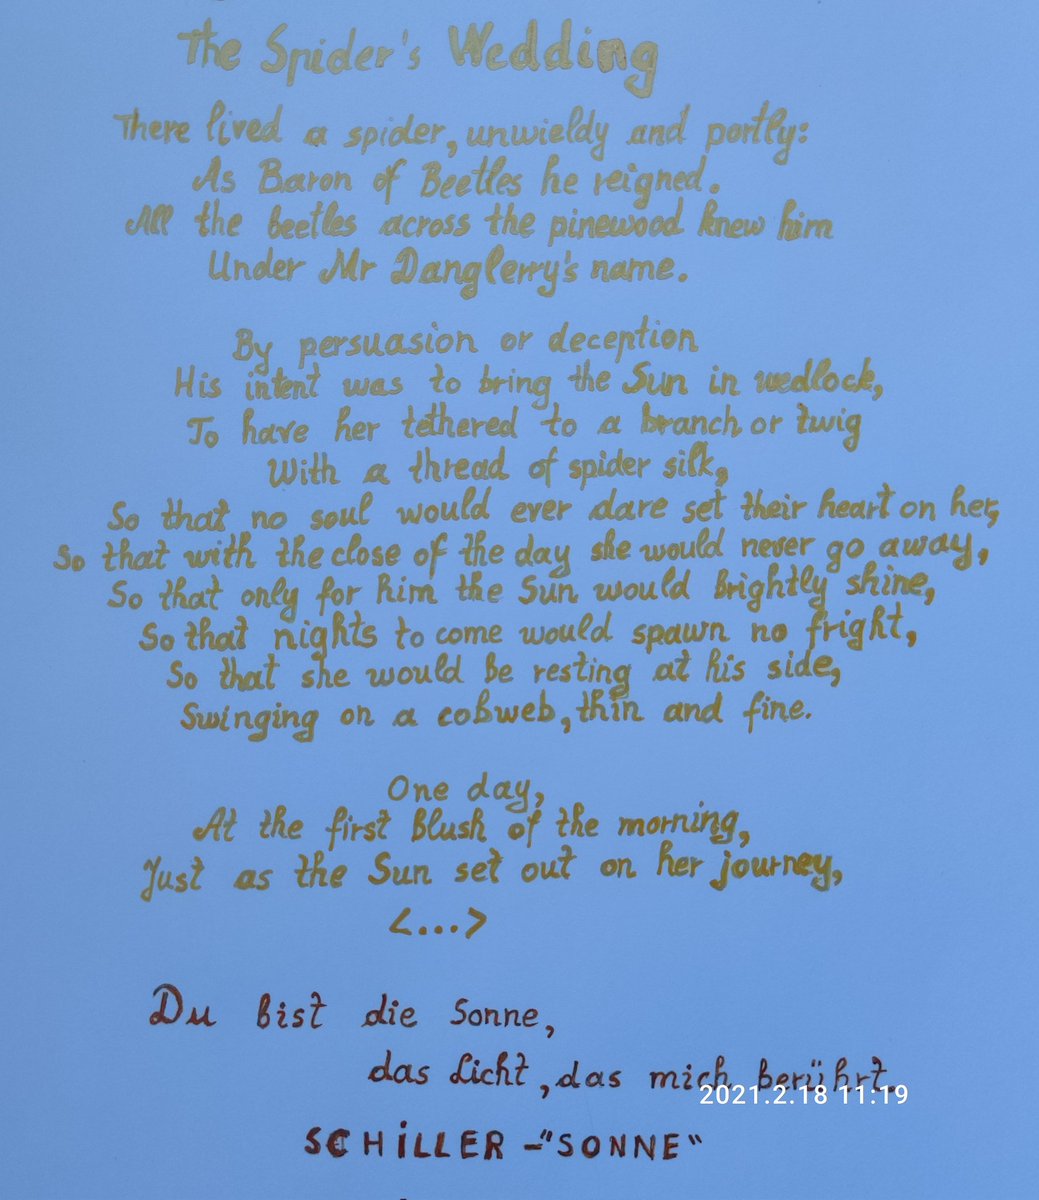 The Spider's Wedding
There lived a spider, unwieldy and portly:
As Baron of Beetles he reigned.
All the beetles across the pinewood knew him
Under Mr Danglerry's name.
By persuasion or deception
His intent was to bring the Sun in wedlock,
To have her tethered to a branch or twig
With a thread of spider silk,
So that no soul would ever dare set their heart on her,
So that with the close of the day she would never go away,
So that only for him the Sun would brightly shine,
So that nights to come would spawn no fright,
So that she would be resting at his side,
Swinging on a cobweb, thin and fine.
One day,
At the first blush of the morning,
Just as the Sun set out on her journey,
<...>
Du bist die Sonne,
das Licht, das mich berührt.
2021.2.18 11:19
SCHiLLER -"SONNE"